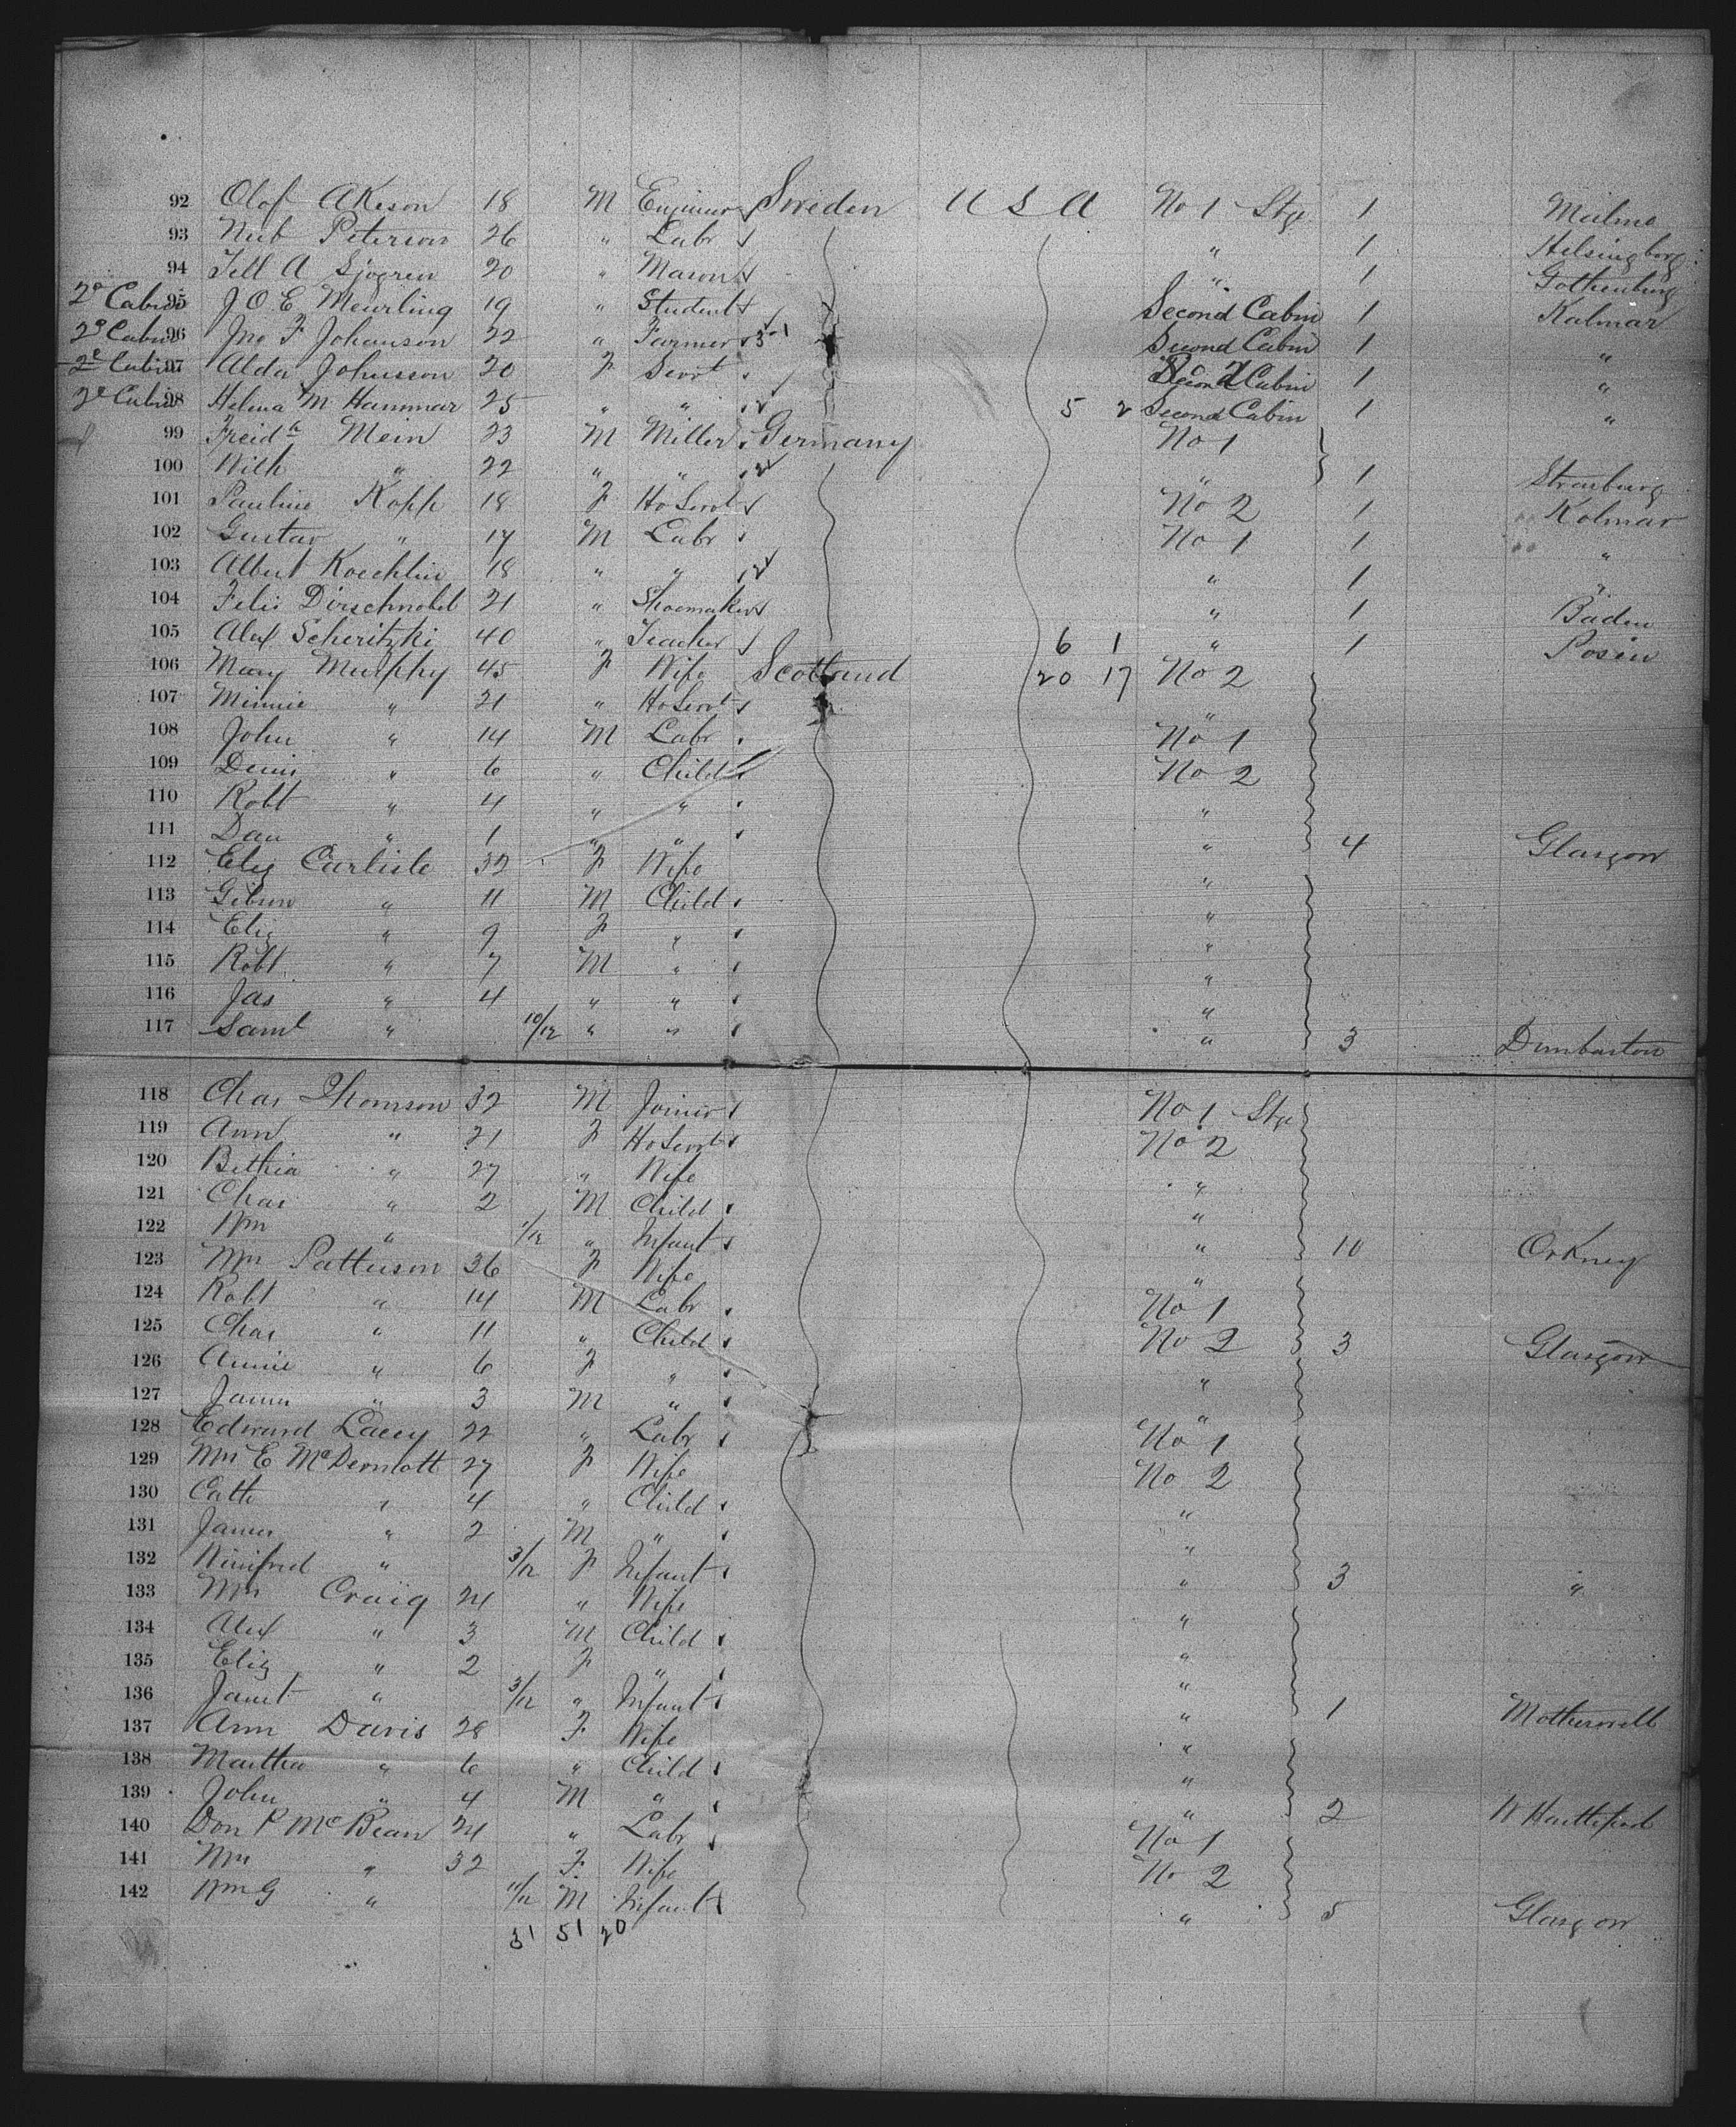 92 Olof AKeson 18 M Engineer Sweden U S A No 1 Stge 1 Malmo
93 Peterson 26 " Labr " 1 Helsingborg
94 A Sjogren 20 " Mason " 1 Gothenburg
2d Cabin 95 J O E Meurling 19 " Student Second Cabin 1 Kalmar
2d Cabin 96 Jno F Johanson 22 " Farmer Second Cabin 1 "
2d Cabin 97 Alda Johnsson 20 F Servt Second Cabin 1 "
2d Cabin 98 Helena M Hammar 25 " " 5 2 Second Cabin 1 "
99 Freidk Mein 23 M Miller Germany No 1
100 Wilh " 22 " " " 1 Strasburg
101 Pauline Kopp 18 F Ho Servt No 2 1 Kolmar
102 Gustav " 17 M Labr No 1 1 "
103 Albert Koechlin 18 " " " 1 "
104 Felix Dirschnabel 21 " Shoemaker " 1 Baden
105 Alex Scheritzki 40 " Teacher 6 1 " 1 Posen
106 Mary Murphy 45 F Wife Scotland 20 17 No 2
107 Minnie " 21 " Ho Servt "
108 John " 14 M Labr No 1
109 Denis " 6 " Child No 2
110 Robt " 4 " " "
111 Dan " 1 " " " 4 Glasgow
112 Eliz Carlisle 32 F Wife "
113 " 11 M Child "
114 Eliz " 9 F " "
115 Robt " 7 M " "
116 Jas " 4 " " "
117 Saml " 10/12 " " " 3 Dumbarton
118 Chas Thomson 32 M Joiner No 1 Stge
119 Ann " 21 F Ho Servt No 2
120 Bethia " 27 " Wife "
121 Chas " 2 M Child "
122 Wm " 1/12 " Infant " 10 OrKney
123 Mrs Patterson 36 F Wife "
124 Robt " 14 M Labr No 1
125 Chas " 11 " Child No 2 3 Glasgow
126 Annie " 6 F " "
127 James " 3 M " "
128 Edward Lacey 22 " Labr No 1
129 Mrs E McDermott 27 F Wife No 2
130 Cath " 4 " Child "
131 James " 2 M " "
132 Winifred " 3/12 F Infant " 3 "
133 Mrs Craig 24 " Wife "
134 Alex " 3 M Child "
135 Eliz " 2 F " "
136 Janet " 3/12 " Infant " 1 Motherwell
137 Ann Davis 28 F Wife "
138 Martha " 6 " Child "
139 John " 4 M " " 2 W
140 Don P McBean 24 " Labr No 1
141 Mrs " 32 F Wife No 2
142 Wm G " 11/12 M Infant " 5 Glasgow
31 51 20